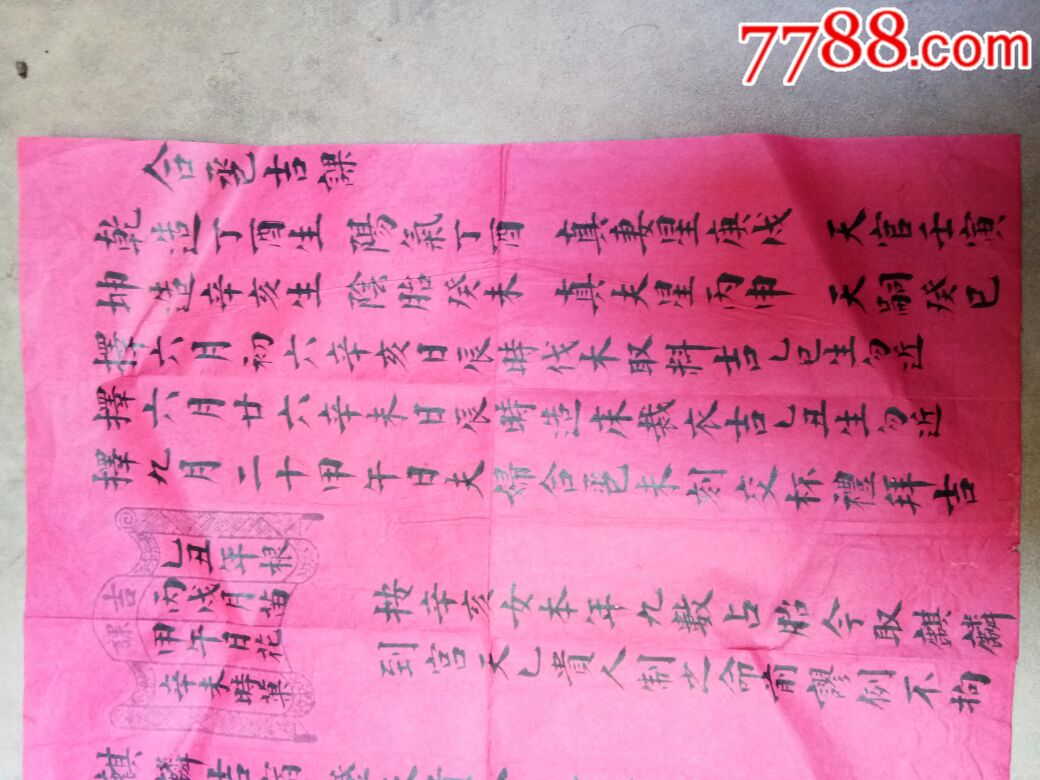 7788.com
合巹吉課
乾造丁酉生 陽氣丁酉 真妻星庚戌 天官壬寅
坤造辛亥生 陰胎癸未 真夫星丙申 天嗣癸巳
擇六月初六辛亥日辰時伐木取料吉乙巳生勿近
擇六月廿六辛未日辰時造床裁衣吉乙丑生勿近
擇九月二十甲午日夫婦合巹未刻交杯禮拜吉
吉課
乙丑年根
丙戌月苗
甲午日花
辛未時菓
按辛亥女本年九數占胎今取麒麟
到宮天乙貴人制之命前謬例不拘
麒麟吉宿